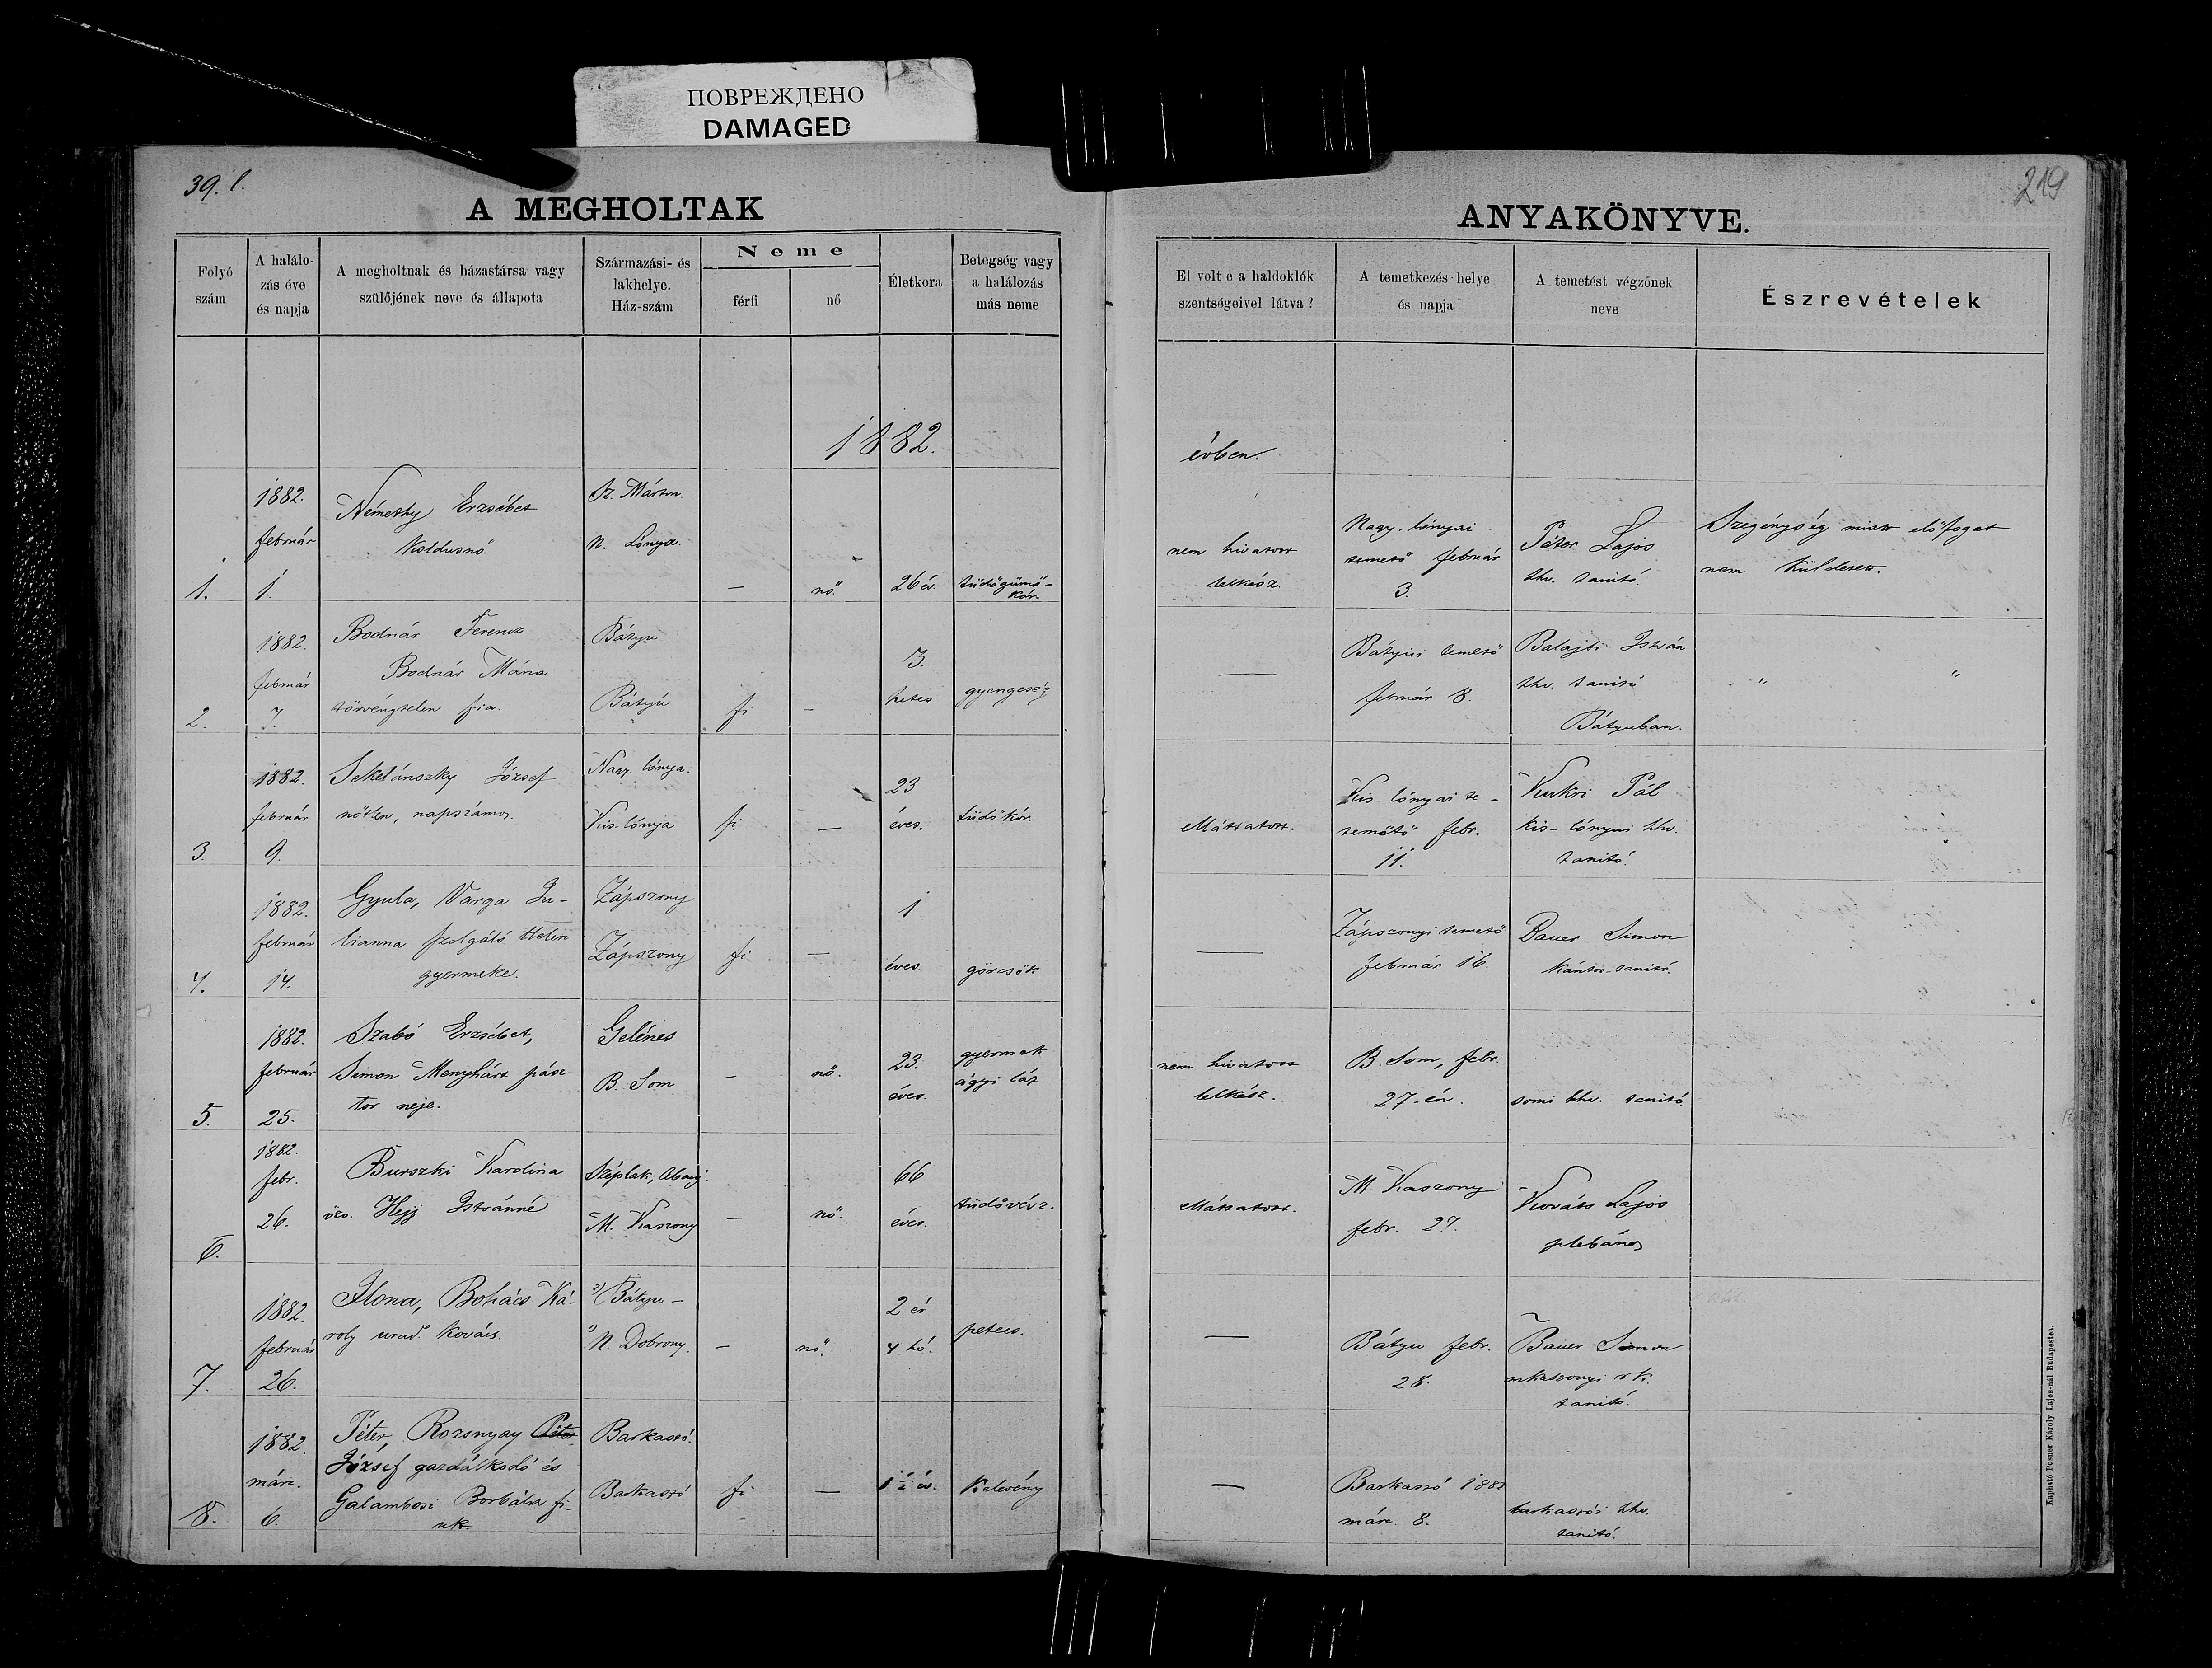 ПОВРЕЖДЕНО
DAMAGED
39. l.
219
A MEGHOLTAK
ANYAKÖNYVE.
Folyó
szám
A halálo-
zás éve
és napja
A megholtnak és házastársa vagy
szülőjének neve és állapota
Származási- és
lakhelye.
Ház-szám
Neme
férfi
nő
Életkora
Betegség vagy
a halálozás
más neme
El volt e a haldoklók
szentségeivel látva?
A temetkezés helye
és napja
A temetést végzőnek
neve
Észrevételek
1882.
évben.
1.
1882.
február
1.
Némethy Erzsébet
koldusnő
Sz. Márton.
N. Lónya.
—
nő.
26 év.
tüdőgümő-
kór.
nem hivatott
lelkész.
Nagy-lónyai
temető február
3.
Péter Lajos
hv. tanító.
Szegénység miatt előfogat
nem küldetett.
2.
1882.
február
7.
Bodnár Ferencz
Bodnár Mária
törvénytelen fia.
Bátyu
Bátyú
fi
—
3.
hetes
gyengeség
—
Bátyui temető
február 8.
Balajti István
hv. tanító
Bátyuban.
" "
3.
1882.
február
9.
Sekelánszky József
nőtlen, napszámos.
Nagy lónya.
Kis-lónya
fi.
—
23
éves.
tüdőkór.
ellátatott.
Kis-lónyai te-
temető febr.
11.
Kukri Pál
kis-lónyai hv.
tanító.
4.
1882.
február
14.
Gyula, Varga Ju-
lianna szolgáló tlen
gyermeke.
Zápszony
Zápszony
fi
—
1
éves.
görcsök
—
Zápszonyi temető
február 16.
Bauer Simon
kántor-tanító.
5.
1882.
február
25.
Szabó Erzsébet,
Simon Menyhárt pász-
tor neje.
Gelénes
B. Som
—
nő.
23.
éves.
gyermek
ágyi láz
nem hivatott
lelkész.
B. Som, febr.
27-én.
somi hv. tanító.
6.
1882.
febr.
26.
Burszki Karolina
özv. Hejj Istvánné
Széplak, Abauj.
M. Kaszony
—
nő.
66
éves.
tüdővész.
ellátatott.
M. Kaszony
febr. 27.
Kováts Lajos
plebános
7.
1882.
február
26.
Ilona, Bohács Ká-
roly urad. kovács.
2) Bátyu —
1) N. Dobrony.
—
nő.
2 év
4 hó.
petecs.
—
Bátyu febr.
28.
Bauer Simon
mkaszonyi rk.
tanító.
8.
1882.
márc.
6.
Péter, Rozsnyay Péter
József gazdálkodó és
Galambosi Borbála fi-
uk.
Barkaszó.
Barkaszó
fi
—
1 ½ év.
kelevény
—
Barkaszó 1882
márc. 8.
barkaszói hv.
tanító.
Kapható Posner Károly Lajos-nál Budapesten.